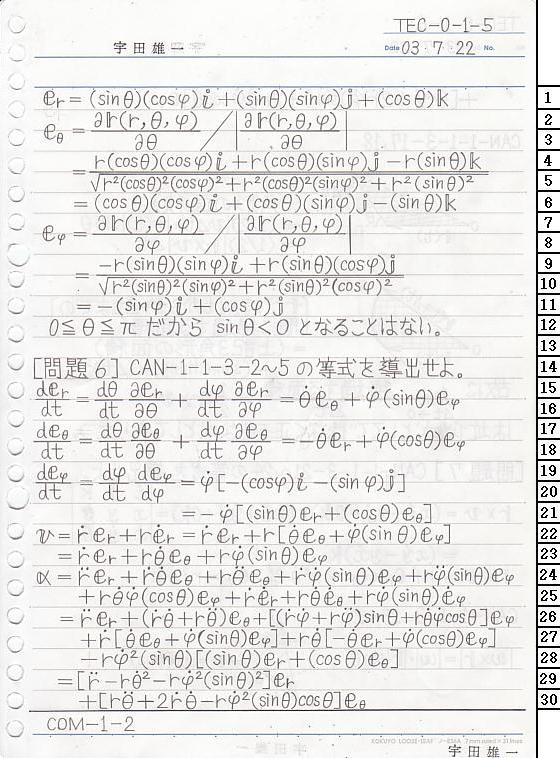 TEC-0-1-5
宇田雄一 Date 03・7・22 No.
𝕖r = (sinθ)(cosφ)𝕚 + (sinθ)(sinφ)𝕛 + (cosθ)𝕜 1
𝕖θ = ∂𝕣(r,θ,φ)/∂θ / |∂𝕣(r,θ,φ)/∂θ| 2 3
= r(cosθ)(cosφ)𝕚 + r(cosθ)(sinφ)𝕛 − r(sinθ)𝕜 4
√r²(cosθ)²(cosφ)² + r²(cosθ)²(sinφ)² + r²(sinθ)² 5
= (cosθ)(cosφ)𝕚 + (cosθ)(sinφ)𝕛 − (sinθ)𝕜 6
𝕖φ = ∂𝕣(r,θ,φ)/∂φ / |∂𝕣(r,θ,φ)/∂φ| 7 8
= −r(sinθ)(sinφ)𝕚 + r(sinθ)(cosφ)𝕛 9
√r²(sinθ)²(sinφ)² + r²(sinθ)²(cosφ)² 10
= −(sinφ)𝕚 + (cosφ)𝕛 11
0≦θ≦π だから sinθ<0 となることはない。 12
13
[問題6] CAN-1-1-3-2~5 の等式を導出せよ。 14
d𝕖r/dt = dθ/dt ∂𝕖r/∂θ + dφ/dt ∂𝕖r/∂φ = θ̇𝕖θ + φ̇(sinθ)𝕖φ 15 16
d𝕖θ/dt = dθ/dt ∂𝕖θ/∂θ + dφ/dt ∂𝕖θ/∂φ = −θ̇𝕖r + φ̇(cosθ)𝕖φ 17 18
d𝕖φ/dt = dφ/dt d𝕖φ/dφ = φ̇[−(cosφ)𝕚 − (sinφ)𝕛] 19 20
= −φ̇[(sinθ)𝕖r + (cosθ)𝕖θ] 21
𝕧 = ṙ𝕖r + r𝕖̇r = ṙ𝕖r + r[θ̇𝕖θ + φ̇(sinθ)𝕖φ] 22
= ṙ𝕖r + rθ̇𝕖θ + rφ̇(sinθ)𝕖φ 23
𝕒 = r̈𝕖r + ṙθ̇𝕖θ + rθ̈𝕖θ + ṙφ̇(sinθ)𝕖φ + rφ̈(sinθ)𝕖φ 24
+ rθ̇φ̇(cosθ)𝕖φ + ṙ𝕖̇r + rθ̇𝕖̇θ + rφ̇(sinθ)𝕖̇φ 25
= r̈𝕖r + (ṙθ̇ + rθ̈)𝕖θ + [(ṙφ̇ + rφ̈)sinθ + rθ̇φ̇cosθ]𝕖φ 26
+ ṙ[θ̇𝕖θ + φ̇(sinθ)𝕖φ] + rθ̇[−θ̇𝕖r + φ̇(cosθ)𝕖φ] 27
− rφ̇²(sinθ)[(sinθ)𝕖r + (cosθ)𝕖θ] 28
= [r̈ − rθ̇² − rφ̇²(sinθ)²]𝕖r 29
+ [rθ̈ + 2ṙθ̇ − rφ̇²(sinθ)cosθ]𝕖θ 30
COM-1-2
KOKUYO LOOSE-LEAF ノ-836A 7mm ruled×31 lines
宇田雄一